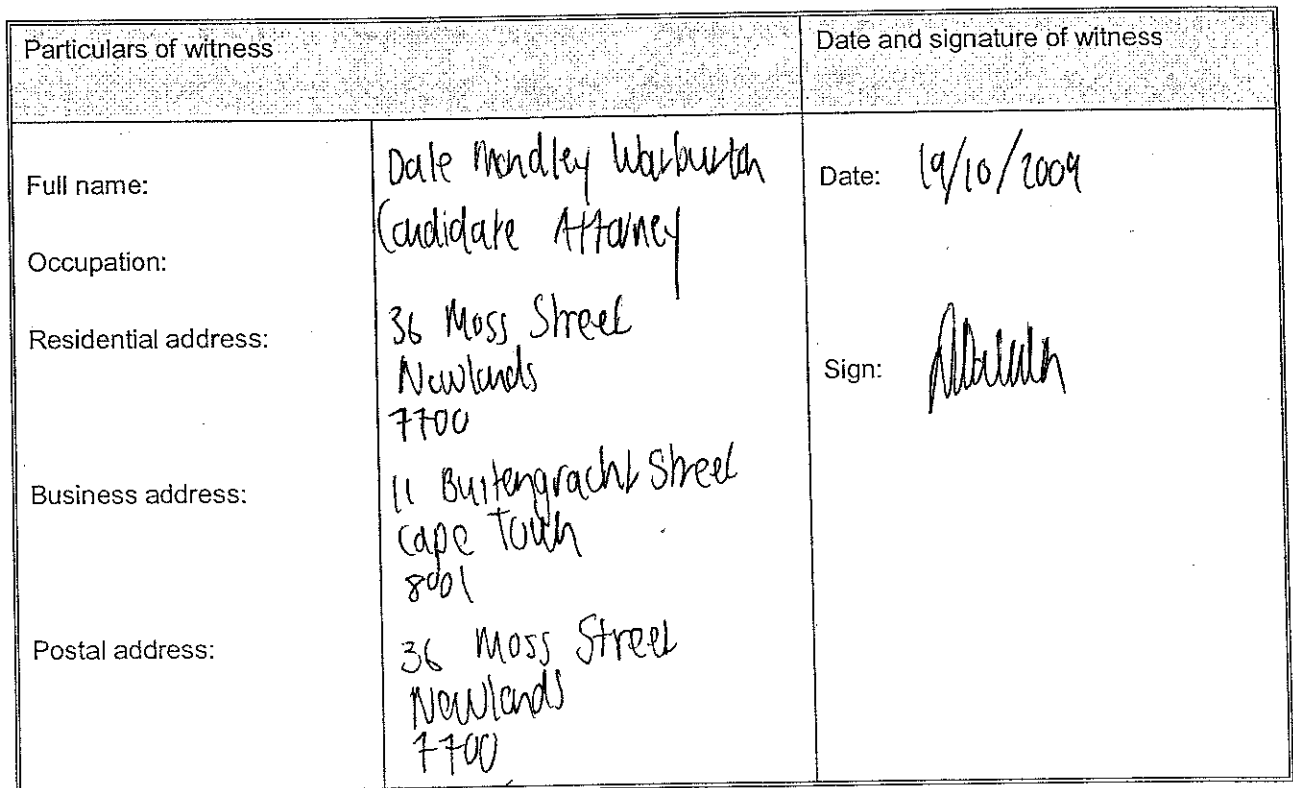 Particulars of witness
Date and signature of witness
Full name:
Dale Warburton
Occupation:
Candidate Attorney
Residential address:
36 Moss Street
Newlands
7700
Business address:
11 Buitengracht Street
Cape Town
8001
Postal address:
36 Moss Street
Newlands
7700
Date: 19/10/2009
Sign: